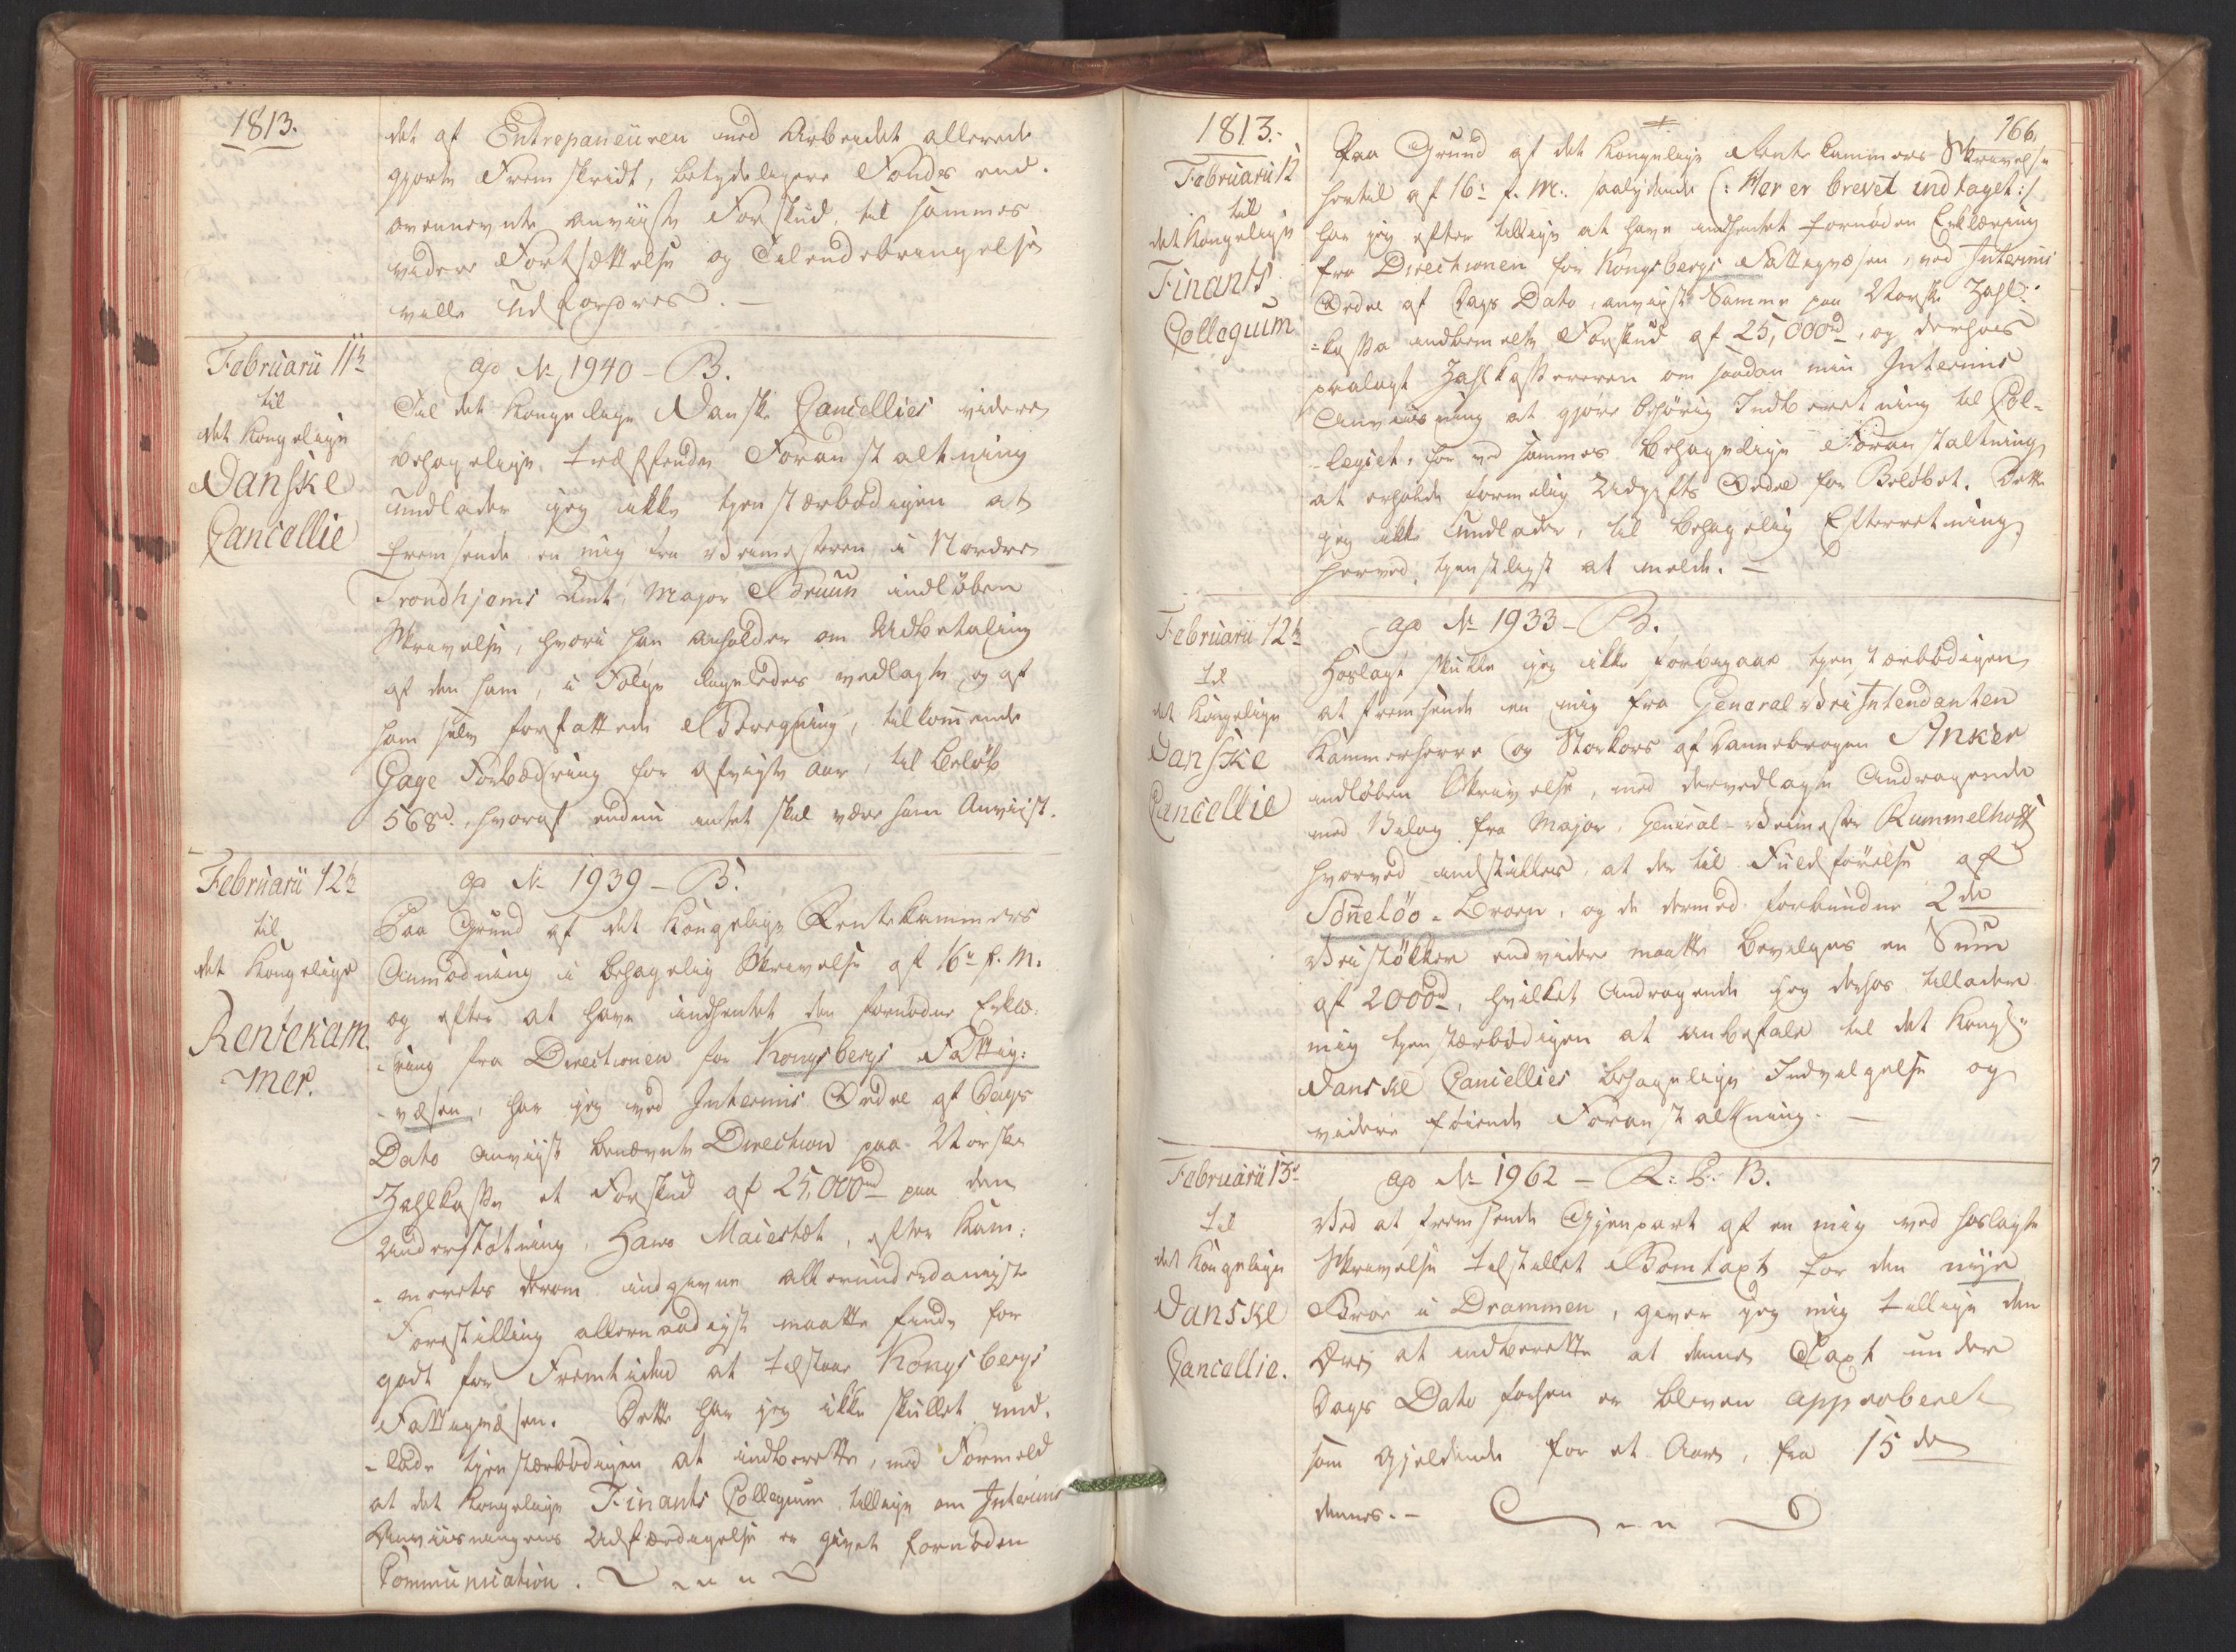 1813.
det af Entrepaneuren med Arbeidet allerede
gjorte Fremskridt, betydeligere Fonds end
ovennevnte anviiste Forskud, til sammes
videre Fortsættelse og Tilendebringelse
ville udfordres. —
Februarii 11te
til
det Kongelige
Danske
Cancellie
ap No 1940 – B.
Til det Kongelige Danske Cancellies videre
behagelige træffende Foranstaltning
undlader jeg ikke tjenstærbødigen at
fremsende en mig fra Veimesteren i Nordre
Trondhjems Amt, Major Bruun indløben
Skrivelse, hvori han anholder om Udbetaling
af den ham, i Følge ligeledes vedlagte og af
ham selv forfattede Beregning, tilkommende
Gage Forbedring for afvigte Aar, til Beløb
568rd. hvoraf endnu intet skal være ham Anviist.
Februarii 12te
til
det Kongelige
Rentekam
-mer.
ap No 1939 – B.
Paa Grund af det Kongelige Rentekammers
Anmodning i behagelig Skrivelse af 16de f. M.
og efter at have indhentet den fornødne Erklæ-
-ring fra Directionen for Kongsbergs Fattig-
-væsen, har jeg ved Interims Ordre af Dags
Dato anviist benævnte Direction paa Norske
Zahlkasse et Forskud af 25,000rd paa den
Understøtning, Hans Maiestæt, efter Kam-
-merets derom indgivne allerunderdanigste
Forestilling allernaadigst maatte finde for
godt for Fremtiden at tilstaae Kongsbergs
Fattigvæsen. Dette har jeg ikke skullet und-
-lade tjenstærbødigen at indberette, med Formeld
at det Kongelige Finants Collegium tillige om Interims
Anviisningens Udfærdigelse er givet fornøden
Communication.
166.
1813.
Februarii 12
til
det Kongelige
Finants
Collegium
Paa Grund af det Kongelige Rentekammers Skrivelse
hertil af 16de f. M. saalydende (: Her er brevet indtaget :)
har jeg efter tillige at have indhentet fornøden Erklæring
fra Directionen for Kongsbergs Fattigvæsen, ved Interims
Ordre af Dags Dato, anviist Samme paa Norske Zahl-
-kasse ommeldte Forskud af 25,000rd, og derhos
paalagt Zahlkassereren om saadan min Interims
Anviisning at gjøre behørig Indberetning til Col-
-legiet, for ved sammes behagelige Foranstaltning
at erholde formelig Udgifts Ordre for Beløbet. Dette
jeg ikke undlader, til behagelig Efterretning,
herved tjenstligst at melde. —
Februarii 12te
til
det Kongelige
Danske
Cancellie
ap No 1933 – B.
Hoslagt skulle jeg ikke forbigaae tjenstærbødigen
at fremsende en mig fra General Vei Intendanten
Kammerherre og Storkors af Dannebrogen Anker
indløben Skrivelse, med dervedlagte Andragende
med Bilag fra Major, General-Veimester Rummelhoff
hvorved indstilles, at der til Fuldførelse af
-Broen, og de dermed forbundne 2de
Veistykker endvidere maatte bevilges en Sum
af 2000rd, hvilket Andragende jeg derhos tillader
mig tjenstærbødigen at anbefale til det Kongl:
Danske Cancellies behagelige Indvilgelse og
videre føiende Foranstaltning. —
Februarii 13de
til
det Kongelige
Danske
Cancellie.
ap No 1962 – R: C: B.
Ved at fremsende Gjenpart af en mig ved hoslagte
Skrivelse tilstillet Bomtaxt for den nye
Broe i Drammen, giver jeg mig tillige den
Ære at indberette at denne Taxt under
Dags Dato herfra er bleven approberet
som gjeldende for et Aar, fra 15de
dennes. —